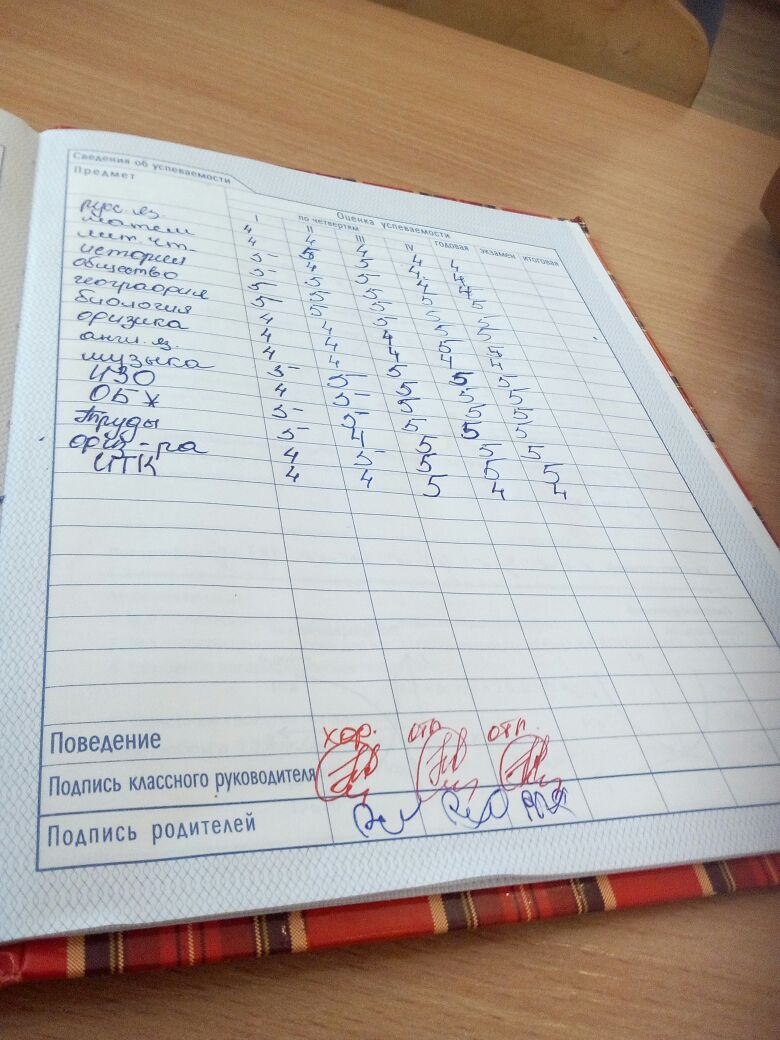 Сведения об успеваемости
Предмет
Оценка успеваемости
по четвертям
I II III IV годовая экзамен итоговая
русс. яз. 4 4 4 4 4
матем 4 5 5 4 4
лит. чт. 5 4 5 4 4
история 5 5 5 5 5
общество 5 5 5 5 5
география 5 5 5 5 5
биология 4 4 4 5 5
физика 4 4 4 4 4
англ. яз. 4 4 5 5 5
музыка 5 5 5 5 5
ИЗО 4 5 5 5 5
ОБЖ 5 5 5 5 5
Труды 5 4 5 5 5
физ-ра 4 5 5 5 5
ИТК 4 4 5 4 4
Поведение хор. отл. отл.
Подпись классного руководителя
Подпись родителей